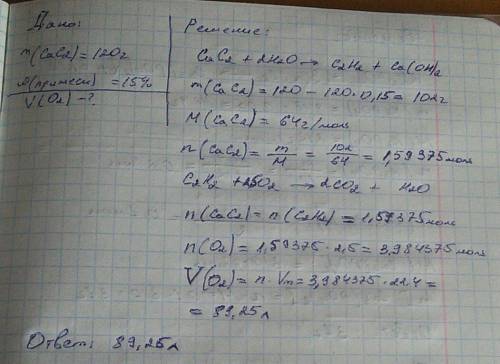 Дано:
m(CaC2) = 120г
ω(примеси) = 15%
V(O2) - ?
Решение:
CaC2 + 2H2O → C2H2 + Ca(OH)2
m(CaC2) = 120 - 120 · 0,15 = 102г
M(CaC2) = 64г/моль
n(CaC2) = m/M = 102/64 = 1,59375моль
C2H2 + 2,5O2 → 2CO2 + H2O
n(CaC2) = n(C2H2) = 1,59375моль
n(O2) = 1,59375 · 2,5 = 3,984375моль
V(O2) = n · Vm = 3,984375 · 22.4 =
= 89,25л
Ответ: 89,25л